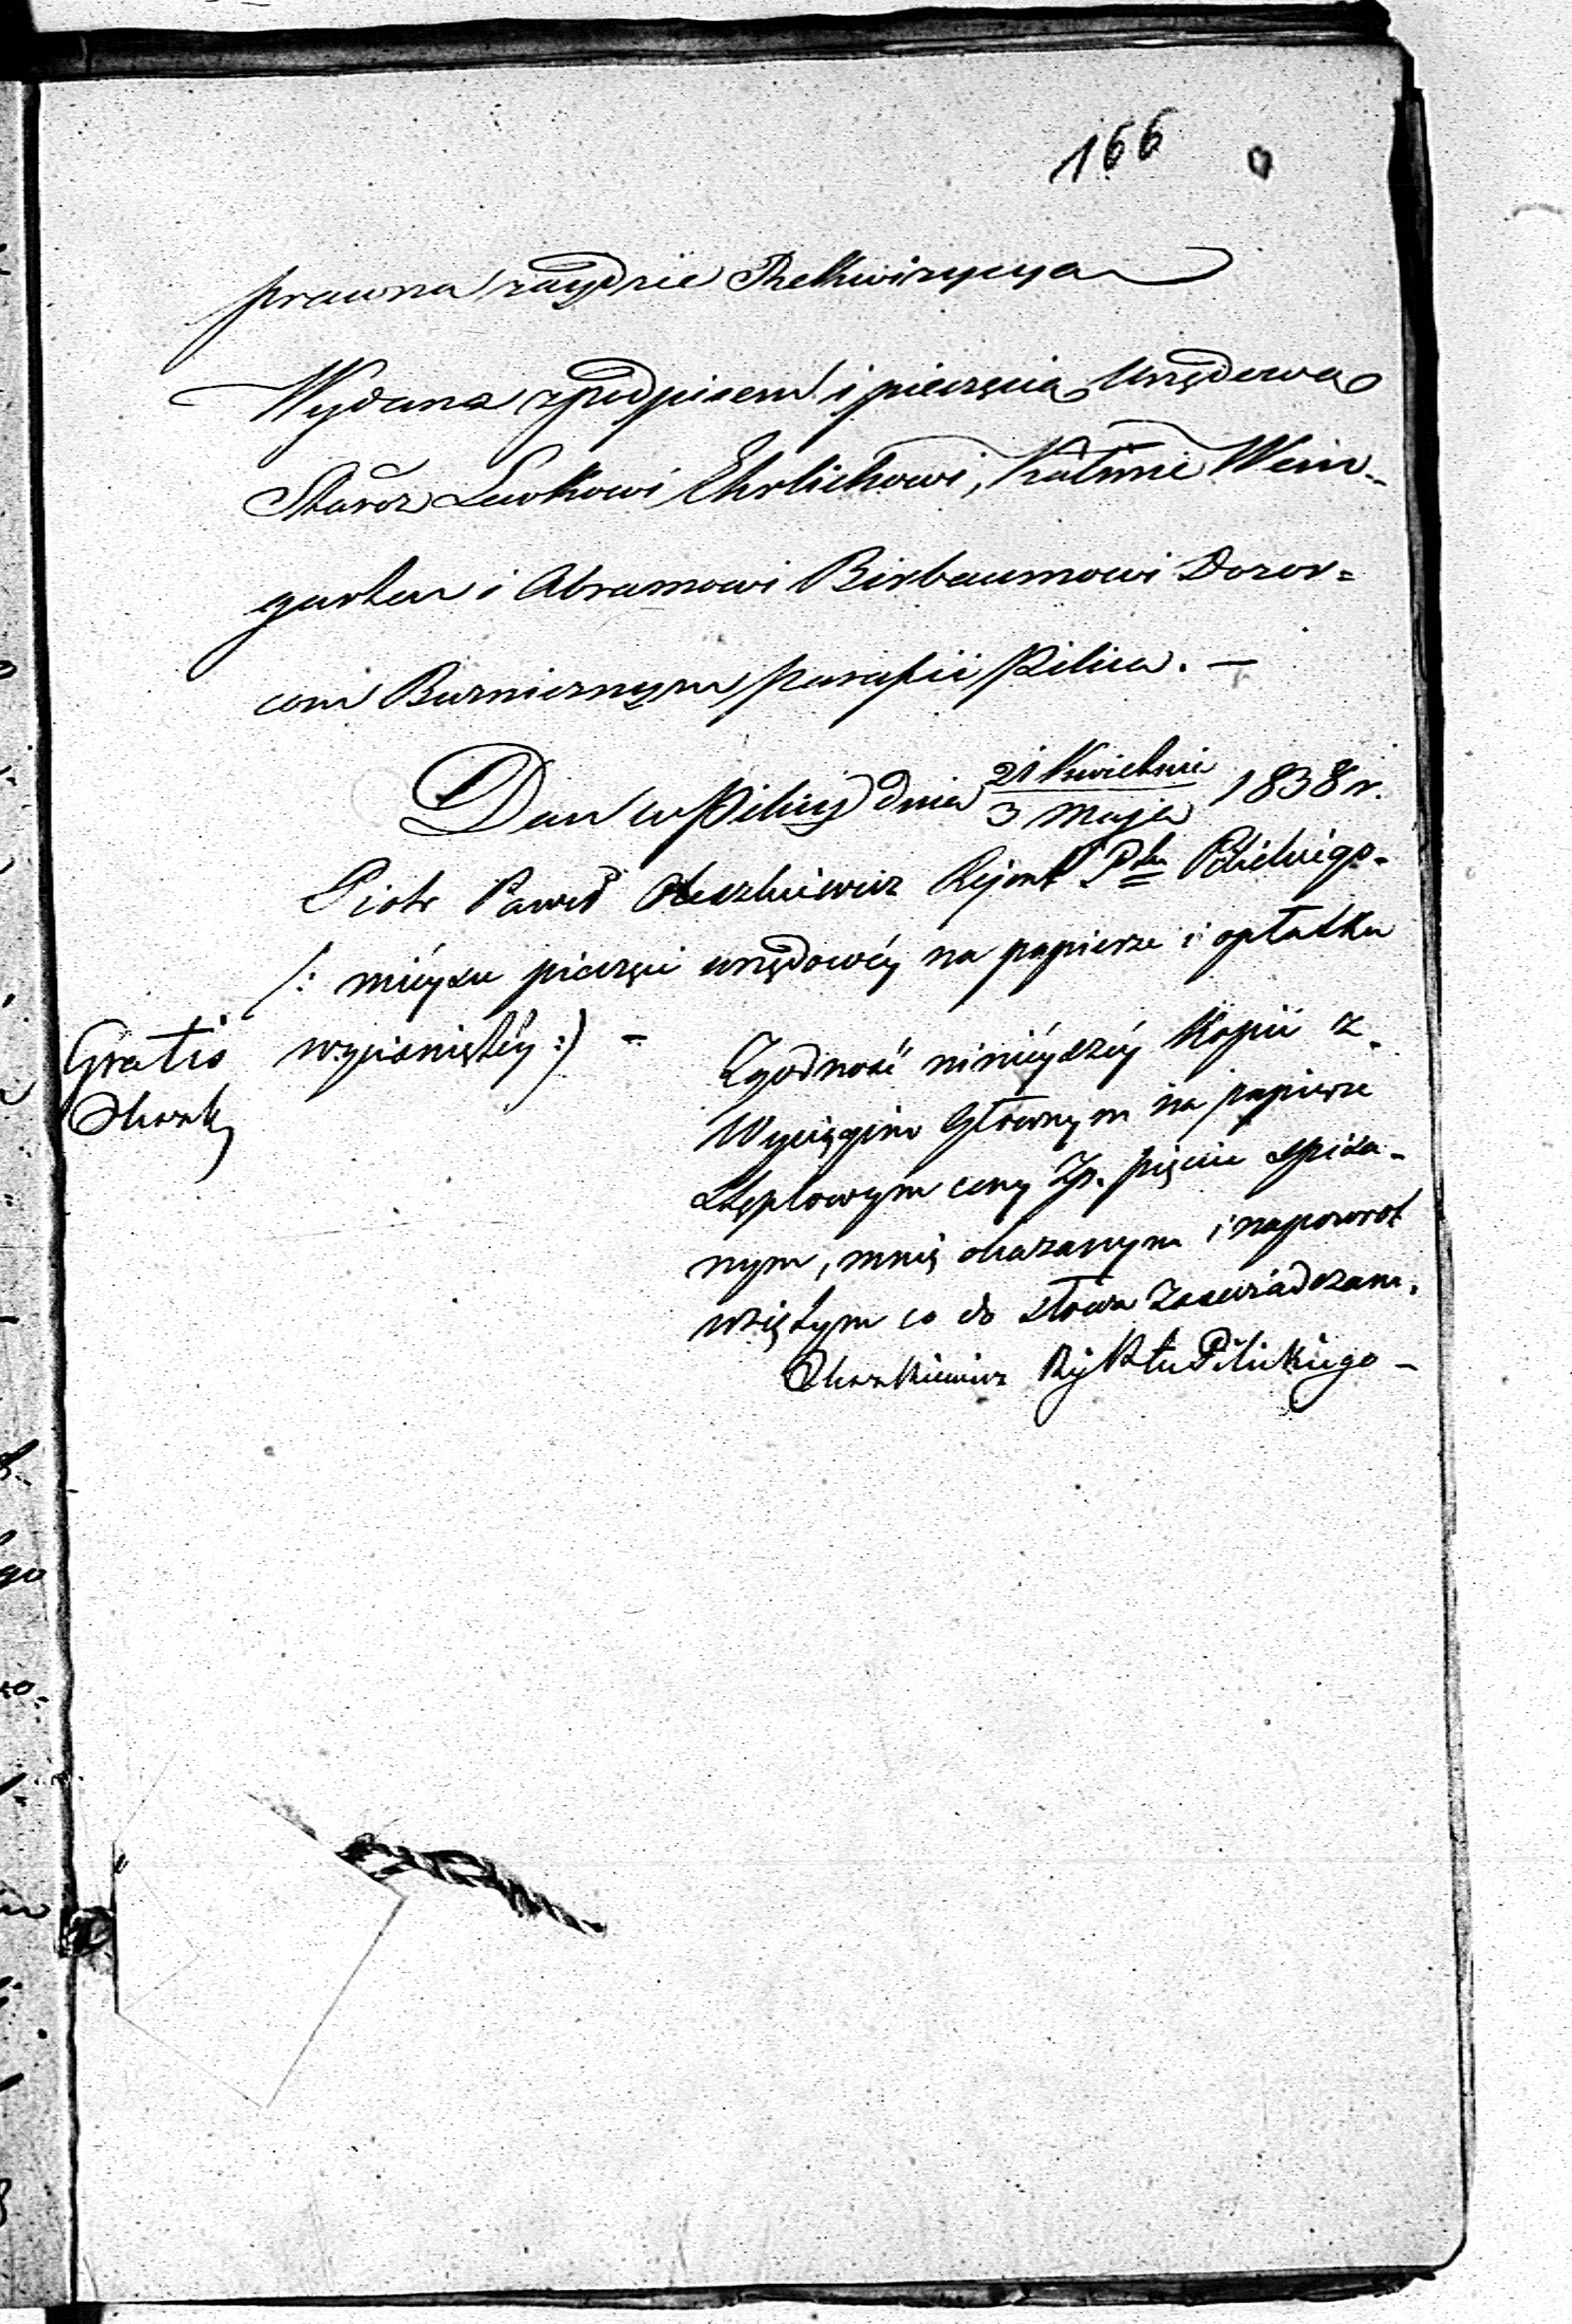 166
prawna zaydzie Rekwizycya
Wydana z podpisem i pieczęcią Urzędową
Staroz Lewkowi Ehrlichowi, Kalmie Wein-
garten i Abramowi Birbaumowi Dozor=
com Bużnicznym parafii Pilica. —
Dan w Pilicy dnia 21 Kwietnia / 3 Maja 1838 r.
Piotr Paweł Rejent Ptu Pilickiego.
/: mieysce pieczęci urzędowéy na papierze i opłatku
wyciśniętéy :) -
Gratis
Zgodność ninieyszéy Kopii z
Wyciągiem Głównym na papierze
stęplowym ceny Zp. pięciu spisa-
nym, mnie okazanym i napowrot
wziętym co do słowa zaświadczam.
Rej Ptu Pilickiego -